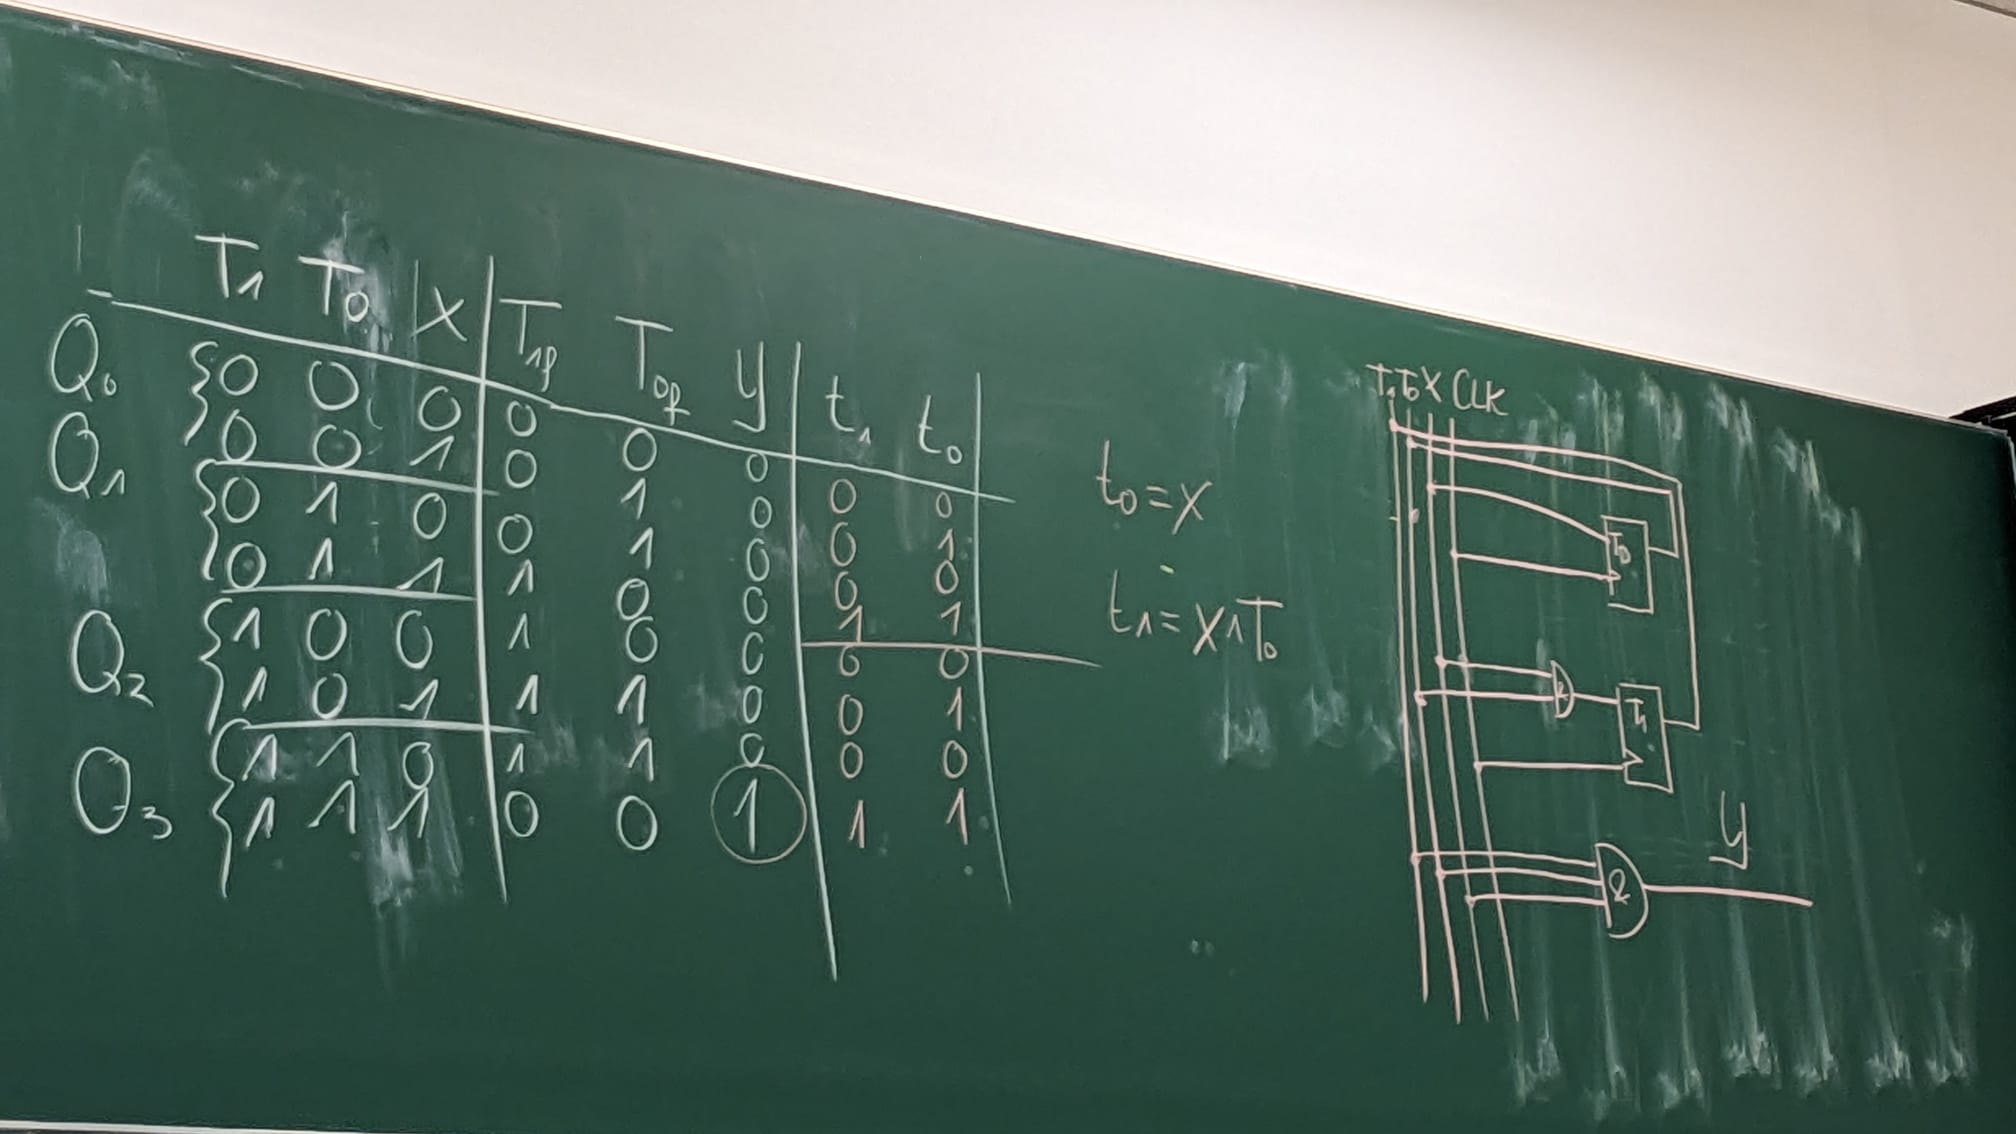 T₁ T₀ X T₁ₚ T₀ₚ y t₁ t₀
Q₀ 0 0 0 0 0 0 0 0
0 0 1 0 1 0 0 1
Q₁ 0 1 0 0 1 0 0 0
0 1 1 1 0 0 1 1
Q₂ 1 0 0 1 0 0 0 0
1 0 1 1 1 0 0 1
Q₃ 1 1 0 1 1 0 0 0
1 1 1 0 0 1 1 1
t₀=X
t₁=X∧T₀
T₁ T₀ X CLK
T₀
&
T₁
&
y